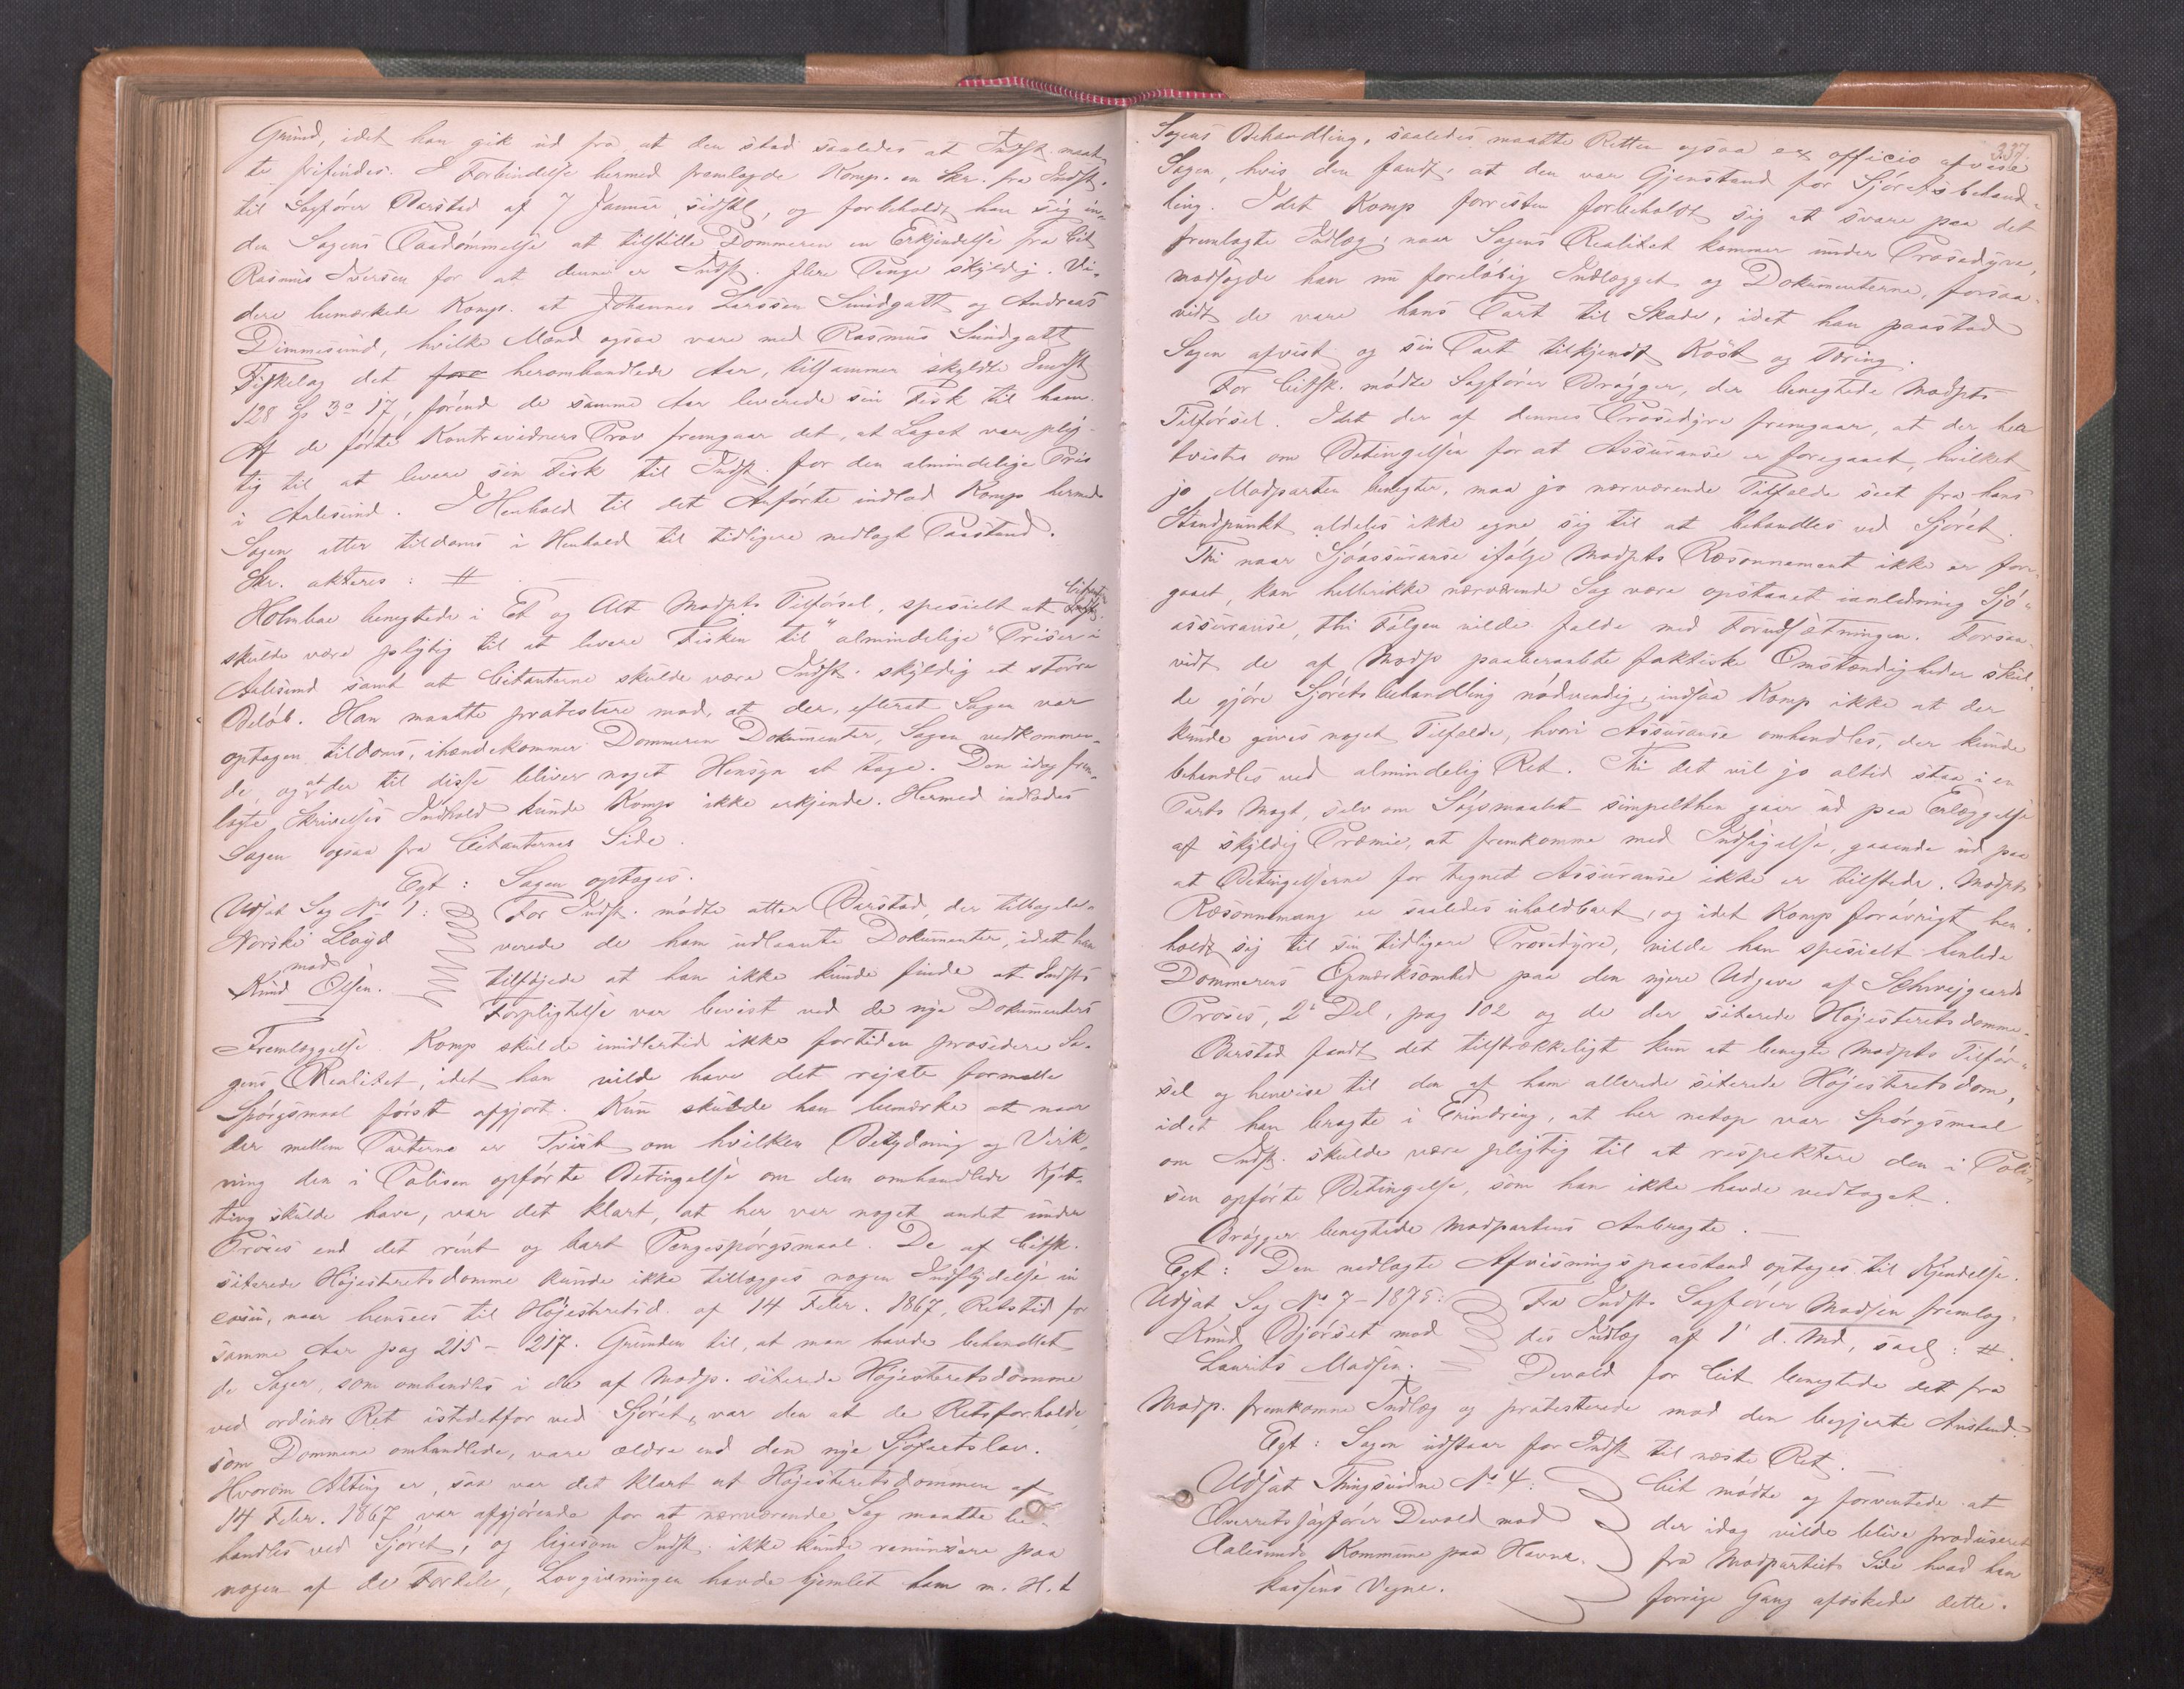 Grund, idet han gik ud fra, at den stod saaledes at Indst. maat-
te frifindes. I Forbindelse hermed fremlagde Komp. en Skr. fra Indst.
til Sagfører Barstad af 7 Januar sidstl, og forbeholdt han sig in-
den Sagens Paadømmelse at tilstille Dommeren en Erkjendelse fra Cit
Rasmus Iversen for at denne er Indst. flere Penge skyldig. Vi-
dere bemærkede Komp. at Johannes Larssen Sundgatt og Andreas
Dimmesund, hvilke Mænd ogsaa vare med Rasmus Sundgatt
Fiskelag det heromhandlede Aar, tilsammen skyldte Indst
128 Sp 3o 17, førend de samme Aar leverede sin Fisk til ham.
Af de førte Kontravidners Prov fremgaar det, at Laget var plig-
tig til at levere sin Fisk til Indst. for den almindelige Pris
i Aalesund. I Henhold til det Anførte indlod Komp hermed
Sagen atter tildoms i Henhold til tidligere nedlagt Paastand.
Skr. akteres: #
Holmboe benegtede i Et og Alt Modpts Tilførsel, spesielt at Citant
skulde være pligtig til at levere Fisken til "almindelige" Priser i
Aalesund samt at Citanterne skulde være Indst. skyldig et større
Beløb. Han maatte protestere mod, at der, efterat Sagen var
optagen tildoms, ihændekommer Dommeren Dokumenter, Sagen vedkommen-
de, og at der til disse bliver noget Hensyn at tage. Den idag frem-
lagte Skrivelses Indhold kunde Komp ikke erkjende. Hermed indlodes
Sagen ogsaa fra Citanternes Side.
Egt: Sagen optages.
Udsat Sag No 1:
Norske Lloyd
mod
Knud Olsen.
For Indst. mødte atter Barstad, der tilbagele-
verede de ham udlaante Dokumenter, idet han
tilføjede at han ikke kunde finde at Indsts
Forpligtelse var bevist ved de nye Dokumenters
Fremlæggelse Komp skulde imidlertid ikke fortiden prosedere Sa-
gens Realitet, idet han vilde have det rejste formelle
Spørgsmaal først afgjort. Kun skulde han bemærke at naar
der mellem Parterne er Tvist om hvilken Betydning og Virk-
ning den i Polisen opførte Betingelse om den omhandlede Kjet-
ting skulde have, var det klart, at her var noget andet under
Proses end det rent og bart Pengespørgsmaal. De af Citsk.
siterede Højesteretsdomme kunde ikke tillægges nogen Indflydelse in
casu, naar hensees til Højesteretsd. af 14 Febr. 1867, Retstid for
samme Aar pag 215 - 217. Grunden til, at man havde behandlet
de Sager, som omhandles i de af Modp. siterede Højesteretsdomme
ved ordinær Ret istedetfor ved Sjøret, var den at de Retsforholde,
som Dommene omhandlede, vare ældre end den nye Sjøfartslov.
Hvorom Alting er, saa var det klart at Højesteretsdommen af
14 Febr. 1867 var afgjørende for at nærværende Sag maatte be-
handles ved Sjøret, og ligesom Indst. ikke kunde renunsere paa
nogen af de Fordele, Lovgivningen havde hjemlet ham m. H. t
337.
Sagens Behandling, saaledes maatte Retten ogsaa ex officio afvise
Sagen, hvis den fandt, at den var Gjenstand for Sjøretsbehand-
ling. Idet Komp forresten forbeholdt sig at svare paa det
fremlagte Indlæg, naar Sagens Realitet kommer under Prosedyre,
modsagde han nu foreløbig Indlægget og Dokumenterne, forsaa-
vidt de vare hans Part til Skade, idet han paastod
Sagen afvist og sin Part tilkjendt Kost og Tæring.
For Citsk. mødte Sagfører Brøgger, der benegtede Modpts
Tilførsel. Idet der af dennes Prosedyre fremgaar, at der her
tvistes om Betingelsen for at Assuranse er foregaaet, hvilket
jo Modparten benegter, maa jo nærværende Tilfælde seet fra hans
Standpunkt aldeles ikke egne sig til at behandles ved Sjøret.
Thi naar Sjøassuranse ifølge Modpts Ræsonnement ikke er fore-
gaaet, kan hellerikke nærværende Sag være opstaaet ianledning Sjø-
assuranse, thi Følgen vilde falde med Forudsætningen. Forsaa-
vidt de af Modp paaberaabte faktiske Omstændigheder skul-
de gjøre Sjøretsbehandling nødvendig, indsaa Komp ikke at der
kunde gives noget Tilfælde, hvori Assuranse omhandles, der kunde
behandles ved almindelig Ret. Thi det vil jo altid staa i en
Parts Magt, selv om Søgsmaalet simpelthen gaar ud paa Erlæggelse
af skyldig Præmie, at fremkomme med Indsigelse, gaaende ud paa
at Betingelserne for tegnet Assuranse ikke er tilstede. Modpts
Ræsonnemang er saaledes uholdbart, og idet Komp forøvrigt hen-
holdt sig til sin tidligere Prosedyre, vilde han spesielt henlede
Dommerens Opmærksomhed paa den nyere Udgave af Schweigaards
Proses, 2. Del, pag 102 og de der siterede Højesteretsdomme.
Barstad fandt det tilstrækkeligt kun at benegte Modpts Tilfør-
sel og henvise til den af ham allerede siterede Højesteretsdom,
idet han bragte i Erindring, at her netop var Spørgsmaal
om Indst. skulde være pligtig til at respektere den i Poli-
sen opførte Betingelse, som han ikke havde vedtaget.
Brøgger benegtede Modpartens Anbragte.
Egt: Den nedlagte Afvisningspaastand optages til Kjendelse.
Udsat Sag No 7 - 1875:
Knud Bjørset mod
Laurits Madsen.
Fra Indst. Sagfører Madsen fremlag-
des Indlæg af 1' d. Md, saal: #
Devold for Cit benegtede det fra
Modp. fremkomne Indlæg og protesterede mod den begjerte Anstand.
Egt: Sagen udstaar for Indst til næste Ret.
Udsat Thingsvidne No 4:
Overretssagfører Devold mod
Aalesunds Kommune paa Havne-
kassens Vegne.
Cit mødte og forventede at
der idag vilde blive produseret
fra Modpartiets Side hvad han
forrige Gang afæskede dette.